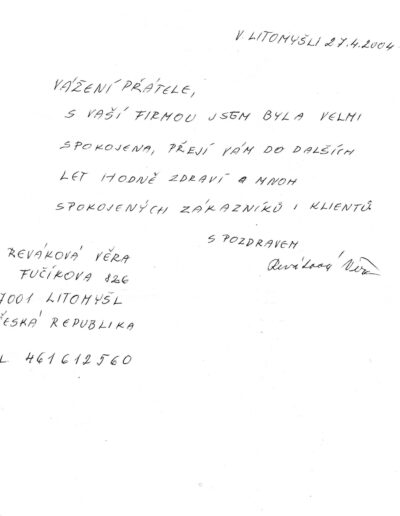 V LITOMYŠLI 27.4.2004
VÁŽENÍ PŘÁTELÉ,
S VAŠÍ FIRMOU JSEM BYLA VELMI
SPOKOJENA, PŘEJI VÁM DO DALŠÍCH
LET HODNĚ ZDRAVÍ A MNOH
SPOKOJENÝCH ZÁKAZNÍKŮ I KLIENTŮ
S POZDRAVEM
Reváková Věra
REVÁKOVÁ VĚRA
FUČÍKOVA 826
7001 LITOMYŠL
ČESKÁ REPUBLIKA
L 461612560